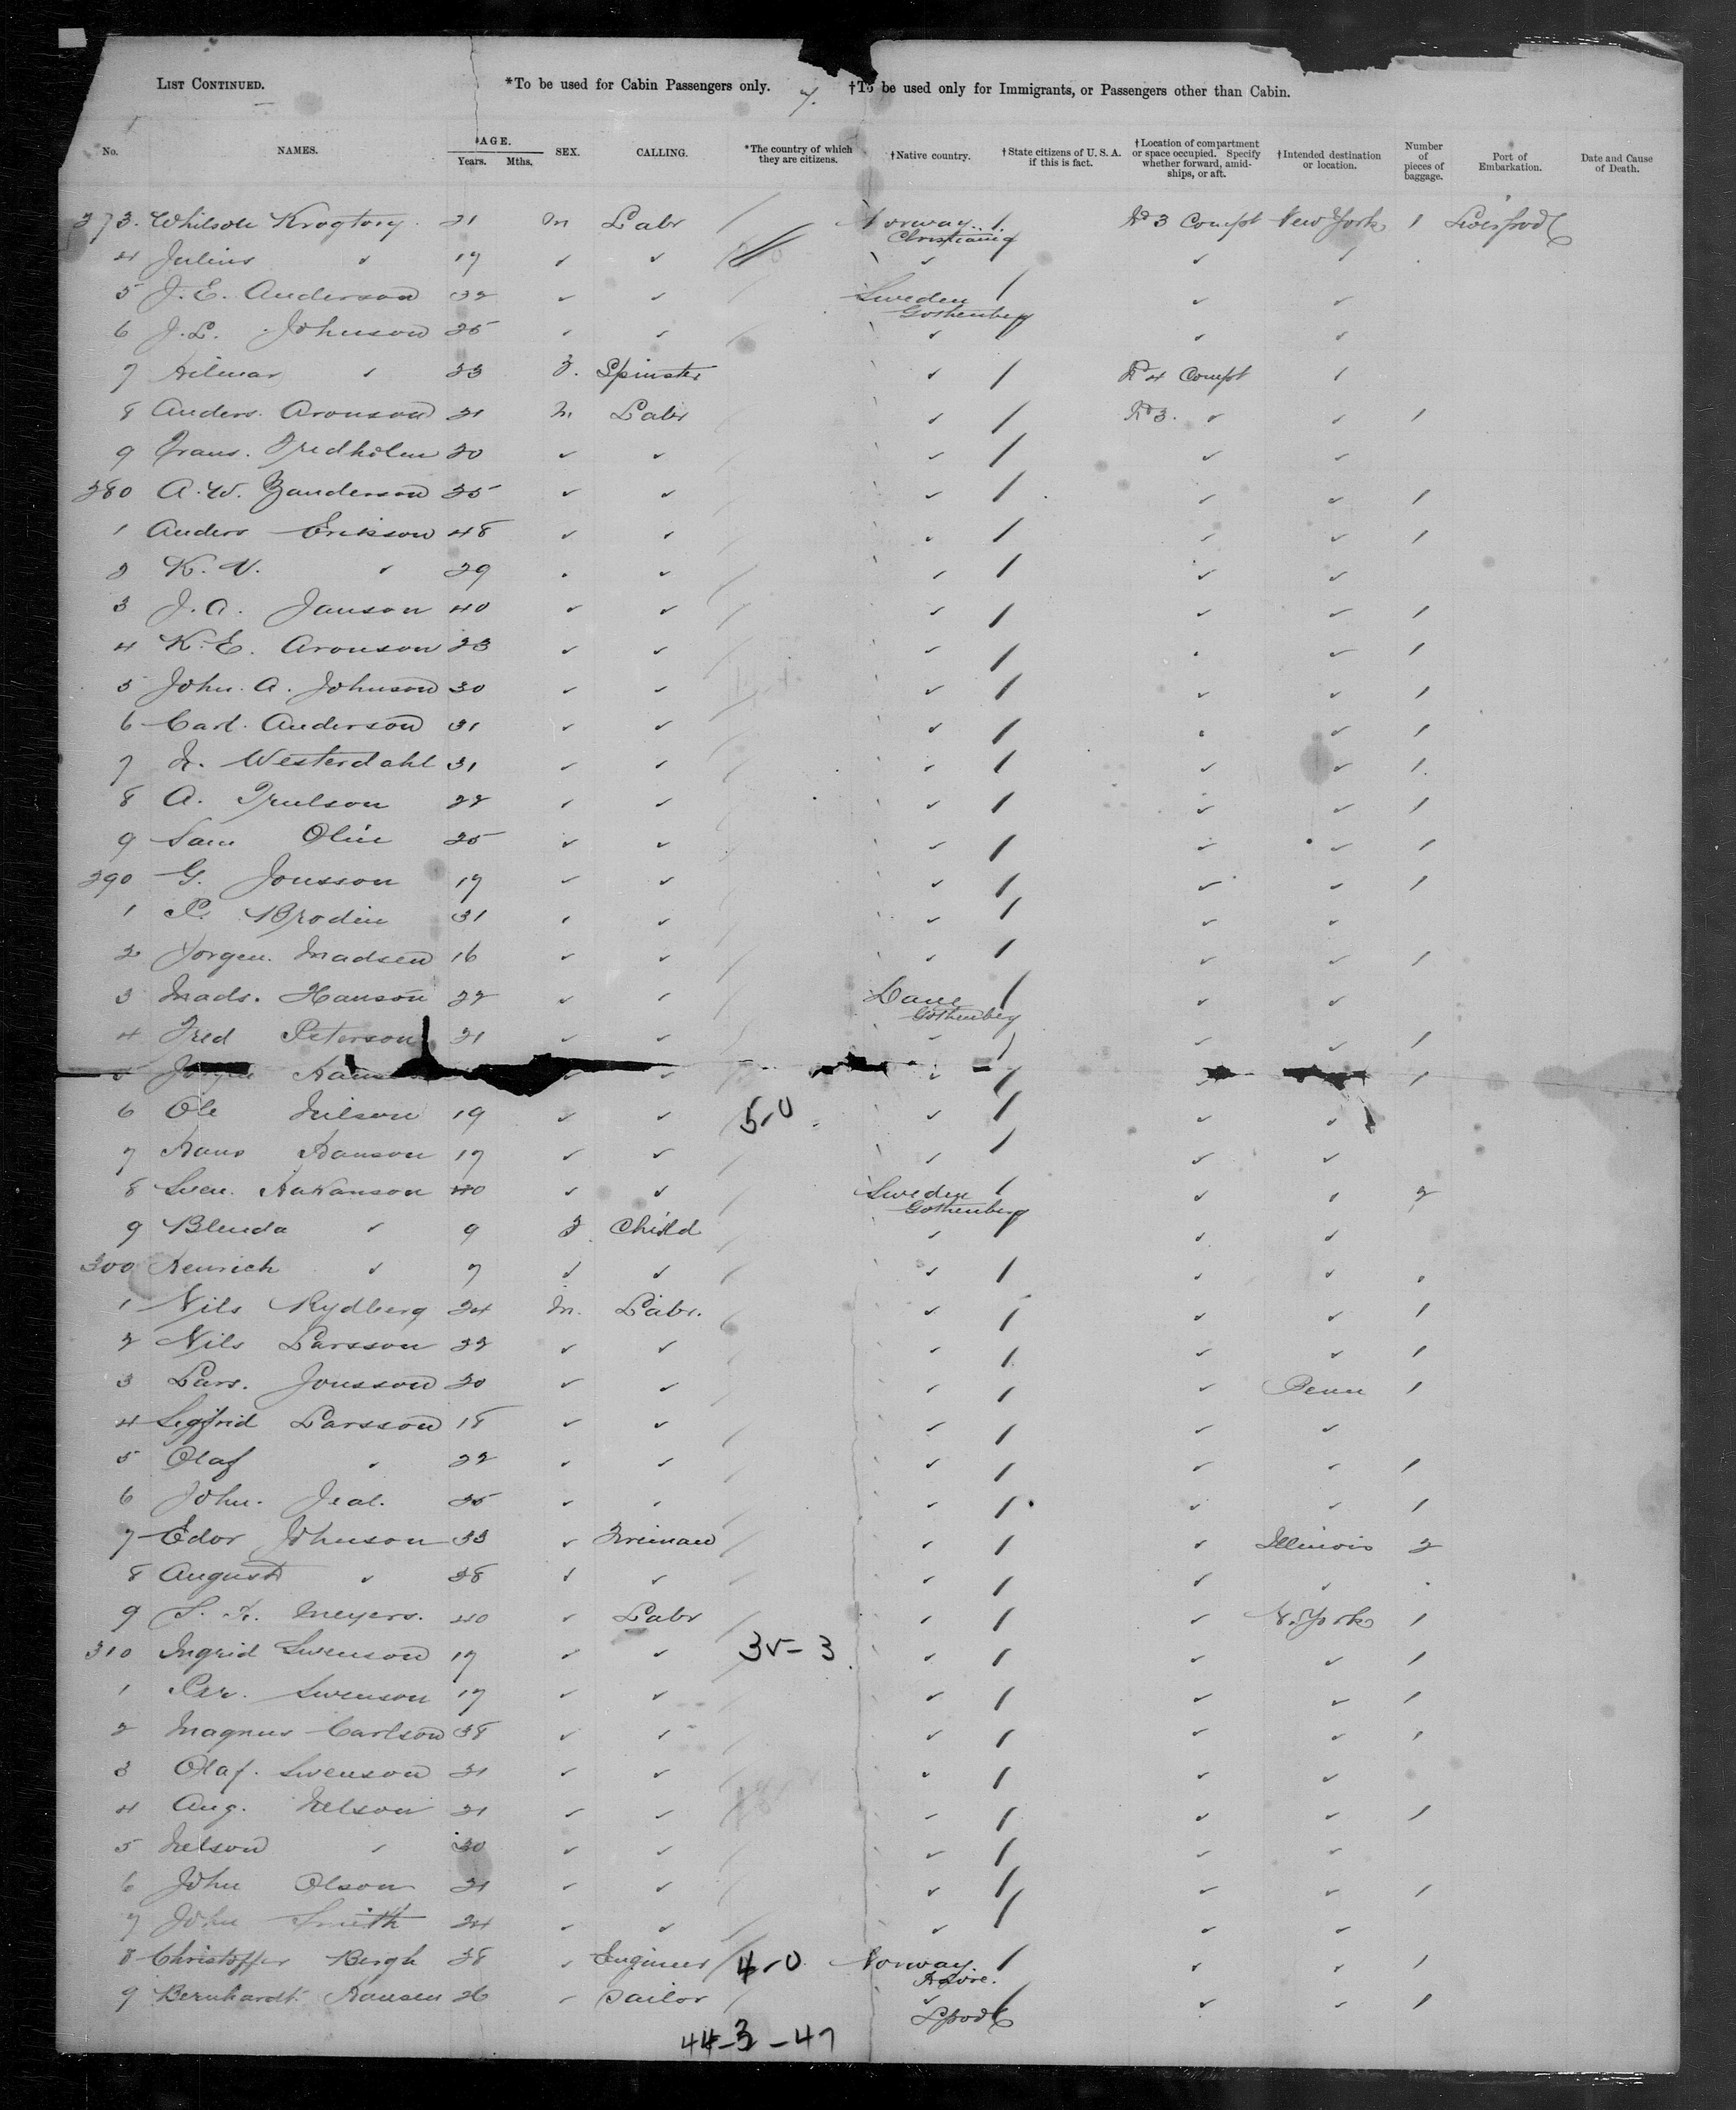 LIST CONTINUED. *To be used for Cabin Passengers only. 7. †To be used only for Immigrants, or Passengers other than Cabin.
No. NAMES. AGE. Years. Mths. SEX. CALLING. *The country of which they are citizens. †Native country. †State citizens of U. S. A. if this is fact. †Location of compartment or space occupied. Specify whether forward, amidships, or aft. †Intended destination or location. Number of pieces of baggage. Port of Embarkation. Date and Cause of Death.
273. 21 M Labr / Norway. / No 3 Compt New York 1 Liverpool
Christiania
4 Julius ✓ 17 ✓ ✓ ✓ ✓ ✓
5 J. E. Anderson 32 ✓ ✓ / Sweden / ✓ ✓
Gothenberg
6 J. L. Johnson 25 ✓ ✓ / ✓ ✓ ✓
7 Hilmar ✓ 23 F. Spinster ✓ / No 4 Compt ✓
8 Anders. Aronson 21 M Labr ✓ / No 3. ✓ ✓ 1
9 Frans. Fredholm 20 ✓ ✓ / ✓ / ✓ ✓
280 A. W. Zanderson 25 ✓ ✓ / ✓ / ✓ ✓ 1
1 Anders Erikson 48 ✓ ✓ / ✓ / ✓ ✓ 1
2 K. V. ✓ 29 ✓ ✓ / ✓ / ✓ ✓
3 J. A. Janson 40 ✓ ✓ / ✓ / ✓ ✓ 1
4 K. E. Aronson 23 ✓ ✓ / ✓ / ✓ ✓ 1
5 John. A. Johnson 30 ✓ ✓ / ✓ / ✓ ✓ 1
6 Carl. Anderson 31 ✓ ✓ / ✓ / ✓ ✓ 1
7 Westerdahl 31 ✓ ✓ / ✓ / ✓ ✓ 1
8 A. Trulson 22 ✓ ✓ / ✓ / ✓ ✓ 1
9 Sam Olin 25 ✓ ✓ / ✓ / ✓ ✓ 1
290 G. Jonsson 17 ✓ ✓ / ✓ / ✓ ✓ 1
1 P. Brodin 31 ✓ ✓ / ✓ / ✓ ✓
2 Jorgen. Madsen 16 ✓ ✓ / ✓ / ✓ ✓ 1
3 Mads. Hanson 22 ✓ ✓ / Dane / ✓ ✓
Gothenberg
4 Fred Peterson 21 ✓ ✓ / ✓ / ✓ ✓ 1
5 ✓ ✓ / ✓ / 1
6 Ole Nilson 19 ✓ ✓ 5-0 ✓ / ✓ ✓
7 Hans Hanson 17 ✓ ✓ / ✓ / ✓ ✓
8 Sven. Hakanson 40 ✓ ✓ / Sweden / ✓ ✓ 2
Gothenberg
9 Blenda ✓ 9 F. Child / ✓ ✓ ✓
300 Henrich ✓ 7 ✓ ✓ / ✓ / ✓ ✓
1 Nils Rydberg 24 M. Labr. / ✓ / ✓ ✓ 1
2 Nils Larsson 22 ✓ ✓ / ✓ / ✓ ✓ 1
3 Lars. Jonsson 20 ✓ ✓ / ✓ / ✓ Penn 1
4 Segfrid Larsson 18 ✓ ✓ / ✓ / ✓ ✓
5 Olaf ✓ 22 ✓ ✓ / ✓ / ✓ ✓ 1
6 John. 25 ✓ ✓ / ✓ / ✓ ✓ 1
7 Edor Johnson 33 ✓ / ✓ / ✓ Illinois 2
8 August ✓ 38 ✓ ✓ / ✓ / ✓ ✓
9 Meyers. 40 ✓ Labr / ✓ / ✓ N. York 1
310 Ingrid Swenson 17 ✓ ✓ 35-3 ✓ / ✓ ✓ 1
1 Per. Swenson 17 ✓ ✓ / ✓ / ✓ ✓ 1
2 Magnus Carlson 38 ✓ ✓ / ✓ / ✓ ✓ 1
3 Olaf. Swenson 21 ✓ ✓ / ✓ / ✓ ✓
4 Aug. Nelson 21 ✓ ✓ ✓ / ✓ ✓ 1
5 Nelson ✓ 20 ✓ ✓ / ✓ / ✓ ✓
6 John Olson 21 ✓ ✓ / ✓ / ✓ ✓ 1
7 John Smith 24 ✓ ✓ / ✓ / ✓ ✓
8 Christoffer Bergh 38 ✓ Engineer / 4-0 Norway. / ✓ ✓ 1
Havre.
9 Bernhardt Hansen 26 ✓ Sailor / ✓ / ✓ ✓ 1
Lpool
44-3-47